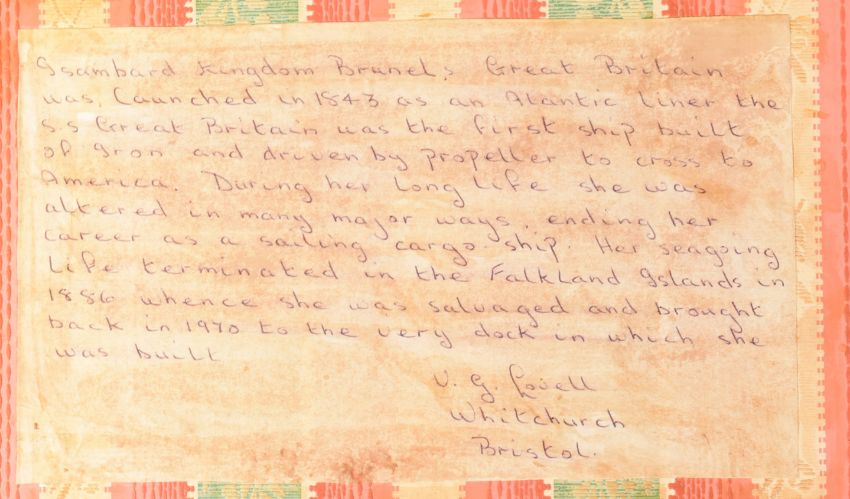 Isambard Kingdom Brunel,s Great Britain
was, Launched in 1843 as an Atlantic Liner the
S.S Great Britain was the first ship built
of Iron and driven by propeller to cross to
America. During her Long Life she was
altered in many major ways, ending her
career as a sailing cargo ship. Her seagoing
Life terminated in the Falkland Islands in
1886 whence she was salvaged and brought
back in 1970 to the very dock in which she
was built
V. G. Lovell
Whitchurch
Bristol.